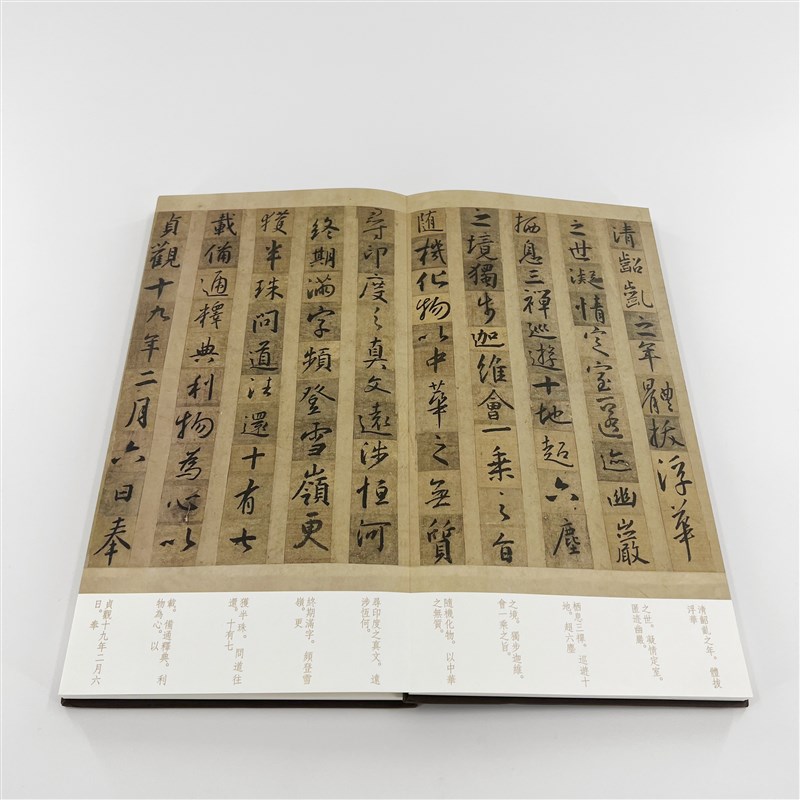 清韶齔之年體拔浮華
之世凝情定室匿迹幽巖
栖息三禪巡遊十地超六塵
之境獨步迦維會一乘之旨
随機化物以中華之無質
尋印度之真文遠涉恒河
終期滿字頻登雪嶺更
獲半珠問道法還十有七
載備通釋典利物為心以
貞觀十九年二月六日奉
清韶齔之年。體拔
浮華
之世。凝情定室。
匿迹幽巖。
栖息三禪。巡遊十
地。超六塵
之境。獨步迦維。
會一乘之旨。
隨機化物。以中華
之無質。
尋印度之真文。遠
涉恆河。
終期滿字。頻登雪
嶺。更
獲半珠。問道往
還。十有七
載。備通釋典。利
物為心。以
貞觀十九年二月六
日。奉